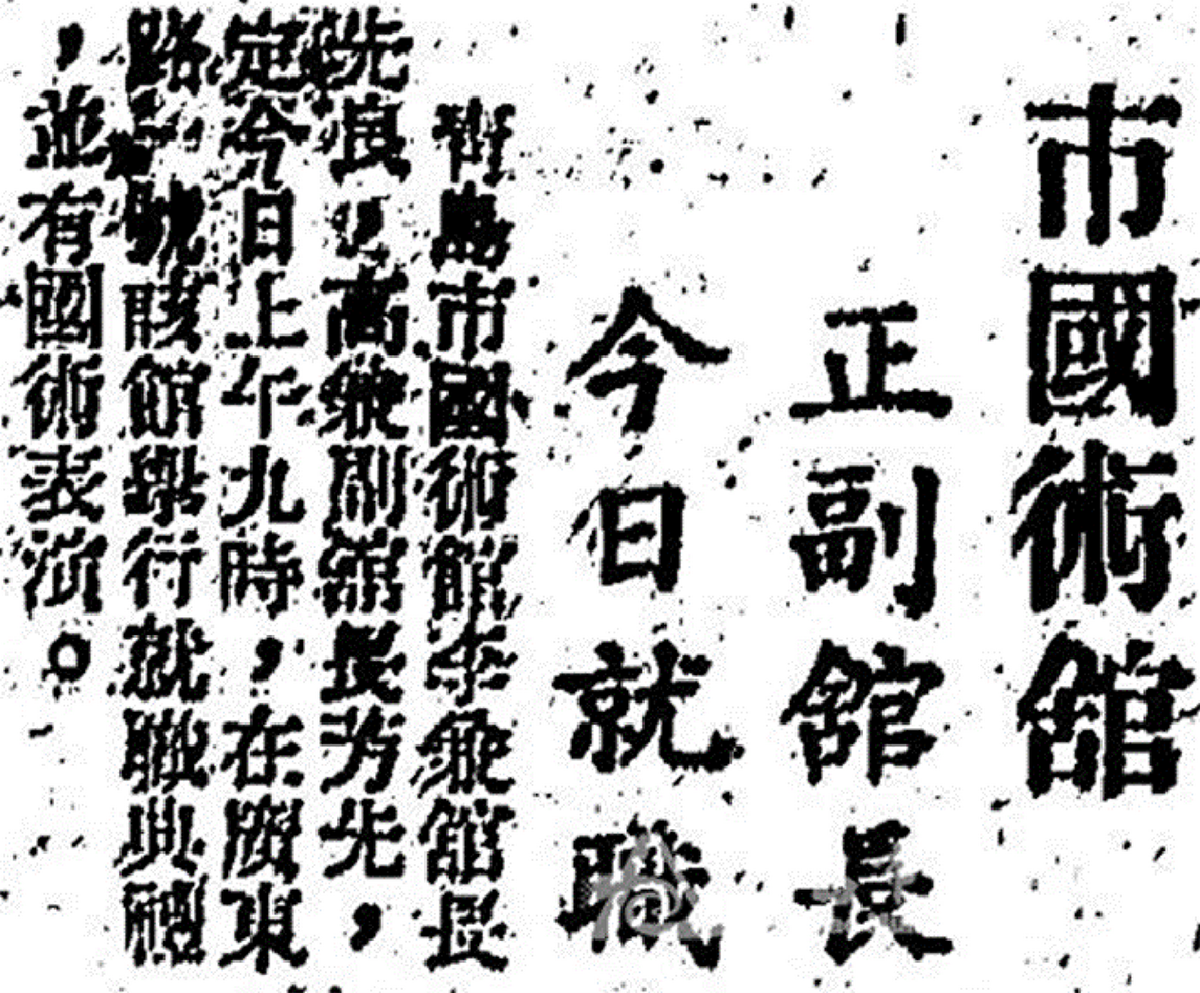 市國術舘
正副舘長
今日就職
青島市國術館李兼館長
先良高兼副館長芳先，
定今日上午九時，在膠東
路號該館舉行就職典禮
，並有國術表演。